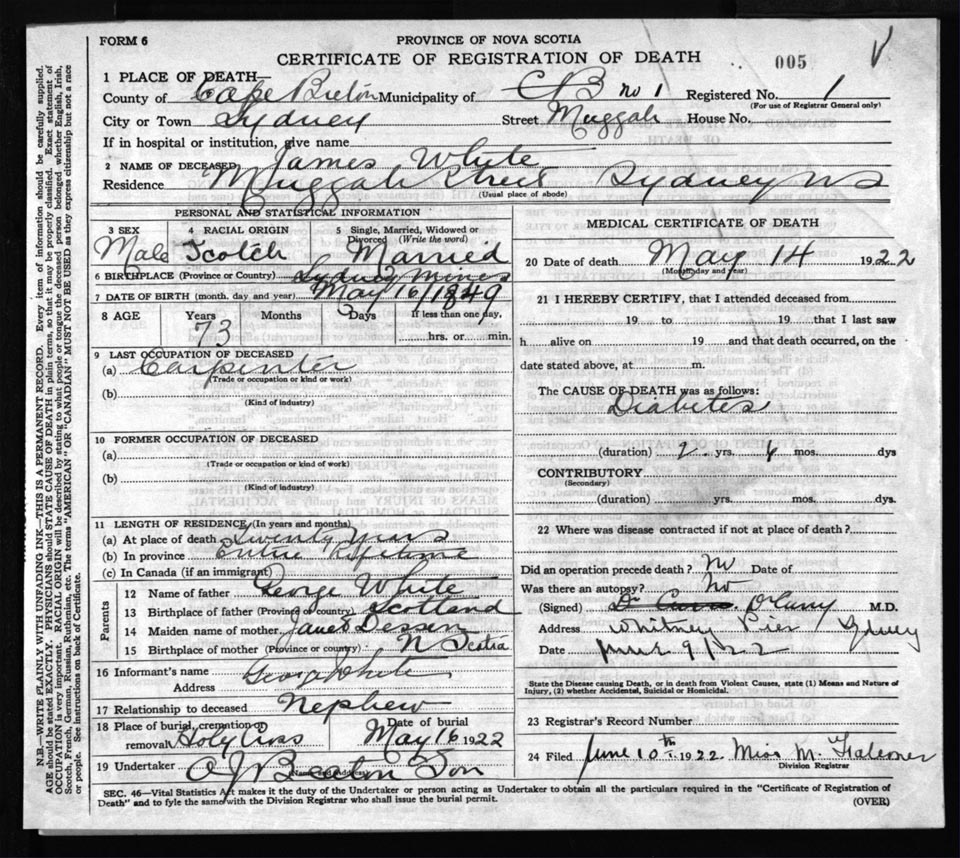 FORM 6
PROVINCE OF NOVA SCOTIA
CERTIFICATE OF REGISTRATION OF DEATH
005
1 PLACE OF DEATH—
County of Cape Breton Municipality of CB no 1 Registered No. 1
(For use of Registrar General only)
City or Town Sydney Street Muggah House No.
If in hospital or institution, give name
2 NAME OF DECEASED James White
Residence Muggah Street Sydney NS
(Usual place of abode)
PERSONAL AND STATISTICAL INFORMATION
3 SEX Male
4 RACIAL ORIGIN Scotch
5 Single, Married, Widowed or Divorced (Write the word) Married
6 BIRTHPLACE (Province or Country) Sydney Mines
7 DATE OF BIRTH (month, day and year) May 16/1849
8 AGE Years Months Days If less than one day,
73 hrs. or min.
9 LAST OCCUPATION OF DECEASED
(a) Carpenter
(Trade or occupation or kind or work)
(b)
(Kind of industry)
10 FORMER OCCUPATION OF DECEASED
(a)
(Trade or occupation or kind of work)
(b)
(Kind of industry)
11 LENGTH OF RESIDENCE (In years and months)
(a) At place of death Twenty Years
(b) In province Entire lifetime
(c) In Canada (if an immigrant)
Parents
12 Name of father George White
13 Birthplace of father (Province or country) Scotland
14 Maiden name of mother Janet
15 Birthplace of mother (Province or country) N Scotia
16 Informant's name George White
Address
17 Relationship to deceased Nephew
18 Place of burial, cremation or removal Holy Cross
Date of burial May 16 1922
19 Undertaker O J Beaton Son
(Name and Address)
MEDICAL CERTIFICATE OF DEATH
20 Date of death May 14 1922
(Month, day and year)
21 I HEREBY CERTIFY, that I attended deceased from
19 to 19 that I last saw
h alive on 19 and that death occurred, on the
date stated above, at m.
The CAUSE OF DEATH was as follows:
Diabetes
(duration) 2 yrs. 6 mos. dys
CONTRIBUTORY
(Secondary)
(duration) yrs. mos. dys
22 Where was disease contracted if not at place of death?
Did an operation precede death? No Date of
Was there an autopsy? No
(Signed) Dr M.D.
Address Whitney Pier Sydney
Date June 9/22
State the Disease causing Death, or in death from Violent Causes, state (1) Means and Nature of
Injury, (2) whether Accidental, Suicidal or Homicidal.
23 Registrar's Record Number
24 Filed June 10th 1922 Miss M. Falconer
Division Registrar
SEC. 46—Vital Statistics Act makes it the duty of the Undertaker or person acting as Undertaker to obtain all the particulars required in the "Certificate of Registration of
Death" and to fyle the same with the Division Registrar who shall issue the burial permit.
(OVER)
N.B.—WRITE PLAINLY WITH UNFADING INK—THIS IS A PERMANENT RECORD. Every item of information should be carefully supplied.
AGE should be stated EXACTLY. PHYSICIANS should STATE CAUSE OF DEATH in plain terms, so that it may be properly classified. Exact statement of
OCCUPATION is very important. RACIAL ORIGIN will be described by stating to what people or tongue the deceased person belonged, whether English, Irish,
Scotch, French, German, Russian, Ruthenian, etc. The terms "AMERICAN" OR "CANADIAN" MUST NOT BE USED as they express citizenship but not a race
or people. See instructions on back of Certificate.